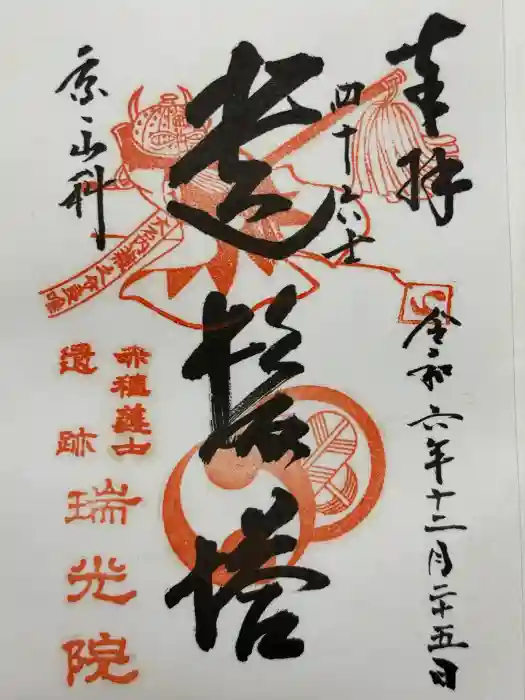 奉拝
四十六士
遺髪塔
京、山科
令和六年十二月二十五日
赤穂義士
遺跡
瑞光院